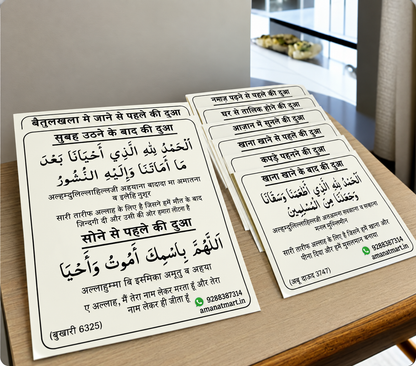 बैतुलखला मे जाने से पहले की दुआ
सुबह उठने के बाद की दुआ
اَلْحَمْدُ لِلّٰهِ الَّذِي أَحْيَانَا بَعْدَ
مَا أَمَاتَنَا وَإِلَيْهِ النُّشُورُ
अल्हम्दुलिल्लाहिल्लजी अहयाना बादादा मा अमातना
व इलेहि नुशूर
सारी तारीफ अल्लाह के लिए है जिसने हमे मौत के बाद
जिन्दगी दी और उसी की ओर हमारा लौटना है
सोने से पहले की दुआ
اَللّٰهُمَّ بِاسْمِكَ أَمُوتُ وَأَحْيَا
अल्लाहुम्मा बि इस्मिका अमूतु व अहया
ए अल्लाह, मैं तेरा नाम लेकर मरता हूँ और तेरा
नाम लेकर ही जीता हूँ
(बुखारी 6325)
9288387314
amanatmart.in
नमाज पढ़ने से पहले की दुआ
घर से दाखिल होने की दुआ
आजान मे सुनले की दुआ
खाना खाने से पहले की दुआ
कपड़े पहनने की दुआ
खाना खाने के बाद की दुआ
اَلْحَمْدُ لِلّٰهِ الَّذِي أَطْعَمَنَا وَسَقَانَا
وَجَعَلَنَا مِنَ الْمُسْلِمِينَ
सारी तारीफ अल्लाह के लिए है जिसने हमे खाना और
पीना दिया और हमे मुसलमान बनाया
(अबू दाऊद 3747)
9288387314
amanatmart.in